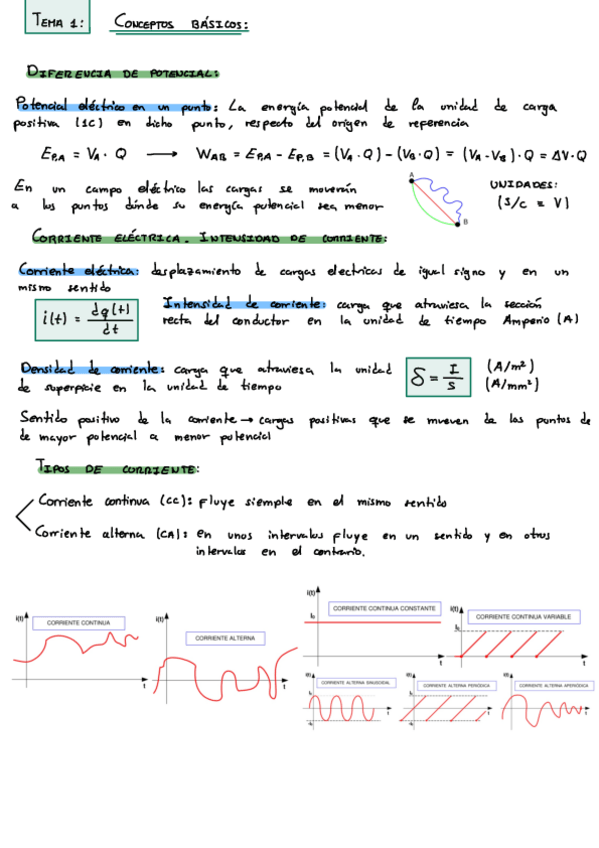 TEMA 1: CONCEPTOS BÁSICOS:
DIFERENCIA DE POTENCIAL:
Potencial eléctrico en un punto: La energía potencial de la unidad de carga
positiva (1C) en dicho punto, respecto del origen de referencia
E_P,A = V_A · Q → W_AB = E_P,A - E_P,B = (V_A · Q) - (V_B · Q) = (V_A - V_B) · Q = ΔV · Q
En un campo eléctrico las cargas se moverán
a los puntos dónde su energía potencial sea menor
A
B
UNIDADES:
(J/C = V)
CORRIENTE ELÉCTRICA. INTENSIDAD DE CORRIENTE:
Corriente eléctrica: desplazamiento de cargas electricas de igual signo y en un
mismo sentido
i(t) = dq(t)/dt
Intensidad de corriente: carga que atraviesa la sección
recta del conductor en la unidad de tiempo Amperio (A)
Densidad de corriente: carga que atraviesa la unidad
de superficie en la unidad de tiempo
δ = I/S
(A/m²)
(A/mm²)
Sentido positivo de la corriente → cargas positivas que se mueven de los puntos de
de mayor potencial a menor potencial
TIPOS DE CORRIENTE:
Corriente continua (CC): Fluye siempre en el mismo sentido
Corriente alterna (CA): en unos intervalos fluye en un sentido y en otros
intervalos en el contrario.
i(t)
CORRIENTE CONTINUA
t
i(t)
CORRIENTE ALTERNA
t
i(t)
I₀
CORRIENTE CONTINUA CONSTANTE
t
i(t)
CORRIENTE CONTINUA VARIABLE
t
i(t)
CORRIENTE ALTERNA SINUSOIDAL
t
i(t)
CORRIENTE ALTERNA PERIÓDICA
t
i(t)
CORRIENTE ALTERNA APERIÓDICA
t